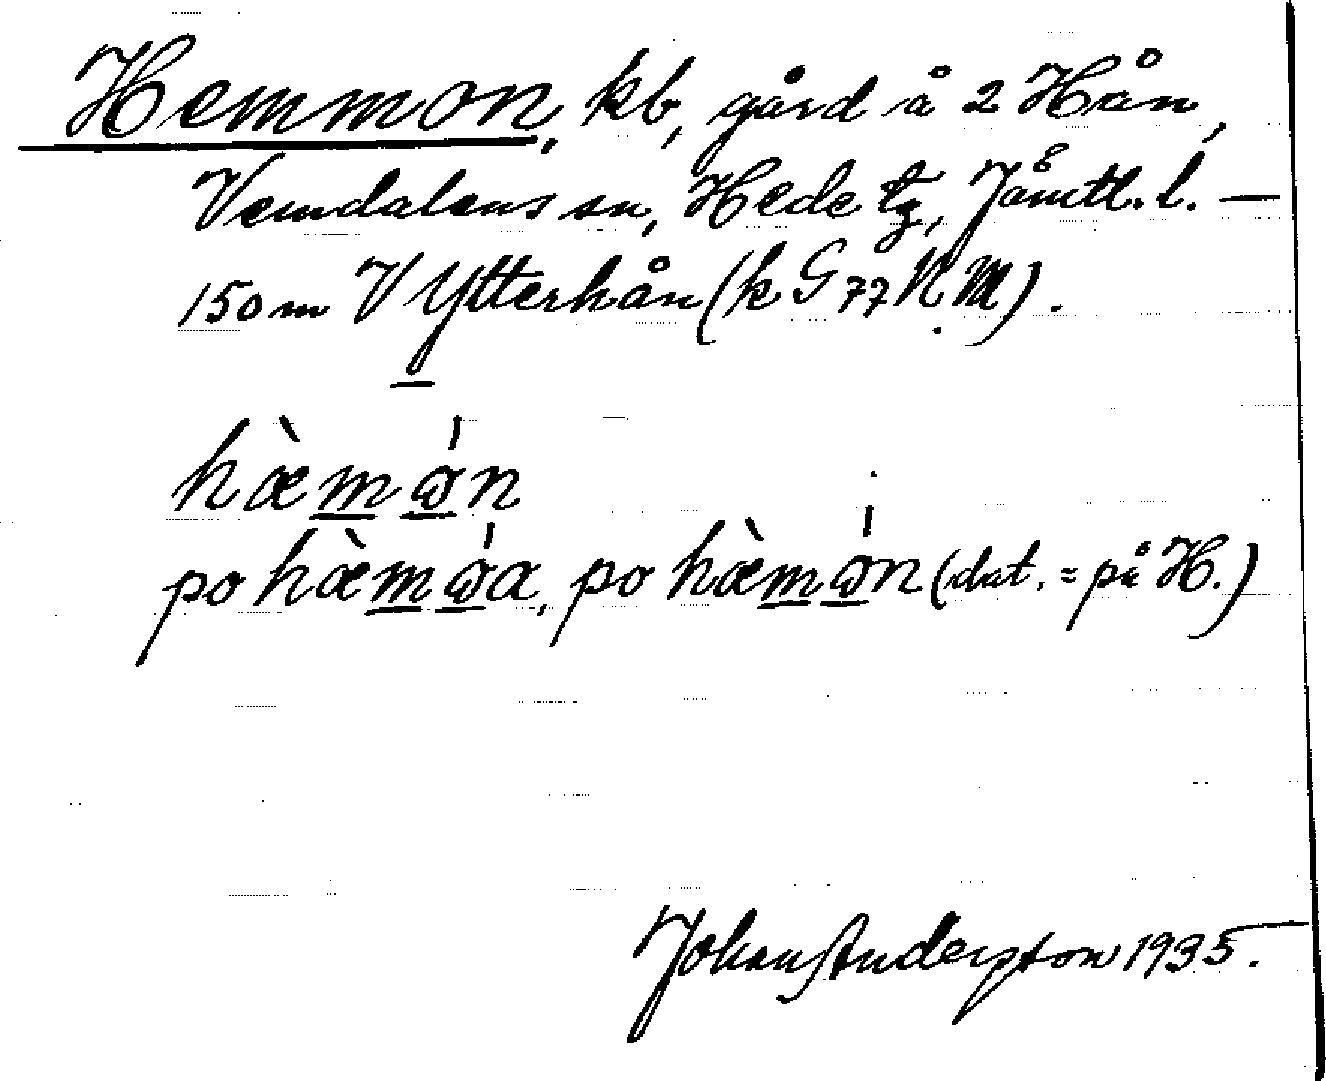 Hemmon, kb, gård å 2 Hån,
Vemdalens sn, Hede tg, Jämtl. l. —
150 m V Ytterhån (k G 77 N. M).
hæ̀mω̇́n
po hæ̀mω̇́a, po hæ̀mω̇́n (dat. = på H.)
Johan Anderzton 1935.